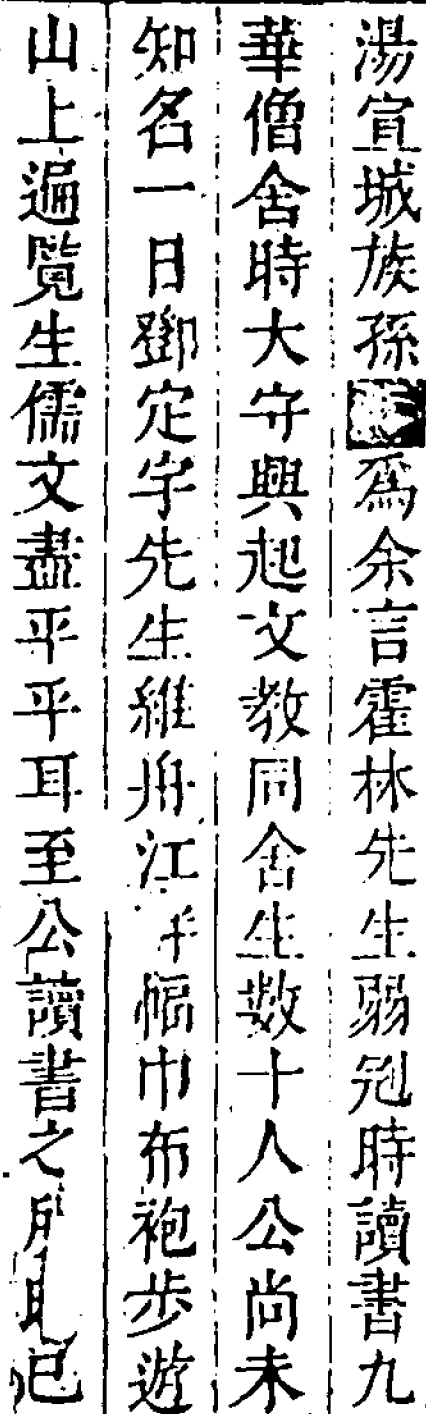 湯宣城族孫爲余言霍林先生弱冠時讀書九
華僧舍時大守興起文教同舍生數十人公尚未
知名一日鄧定宇先生維舟江干幅巾布袍步遊
山上遍覽生儒文盡平平耳至公讀書之所見巳